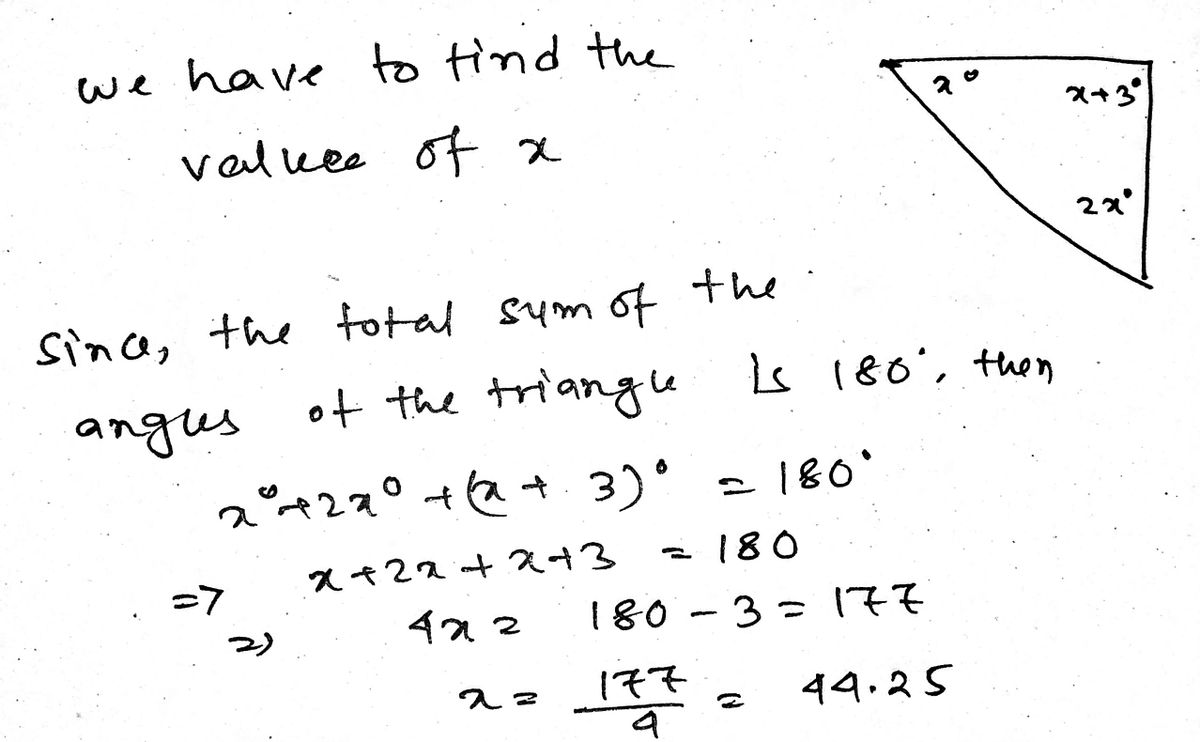 we have to find the
x°
x+3°
values of x
2x°
Since, the total sum of the
angles of the triangle is 180°, then
x°+2x°+(x+3)° = 180°
=> x+2x+x+3 = 180
=> 4x = 180-3 = 177
x = 177/4 = 44.25